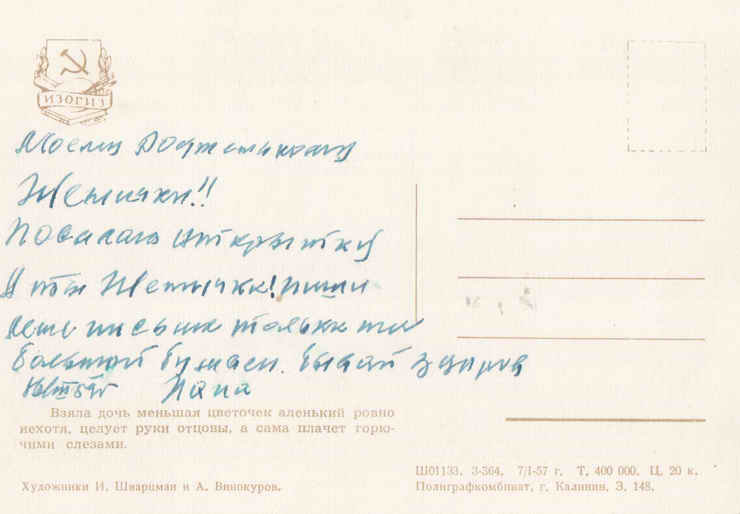 ИЗОГИЗ
Моему
Женички!!
Посылаю открытку
А ты Женичка! пиши
мне письма только на
большой бумаги. Бывай здоров
Папа
Взяла дочь меньшая цветочек аленький ровно
нехотя, целует руки отцовы, а сама плачет горю-
чими слезами.
Художники И. Шварцман и А. Винокуров.
Ш01133. З-364. 7/I-57 г. Т. 400 000. Ц. 20 к.
Полиграфкомбинат, г. Калинин, З. 148.